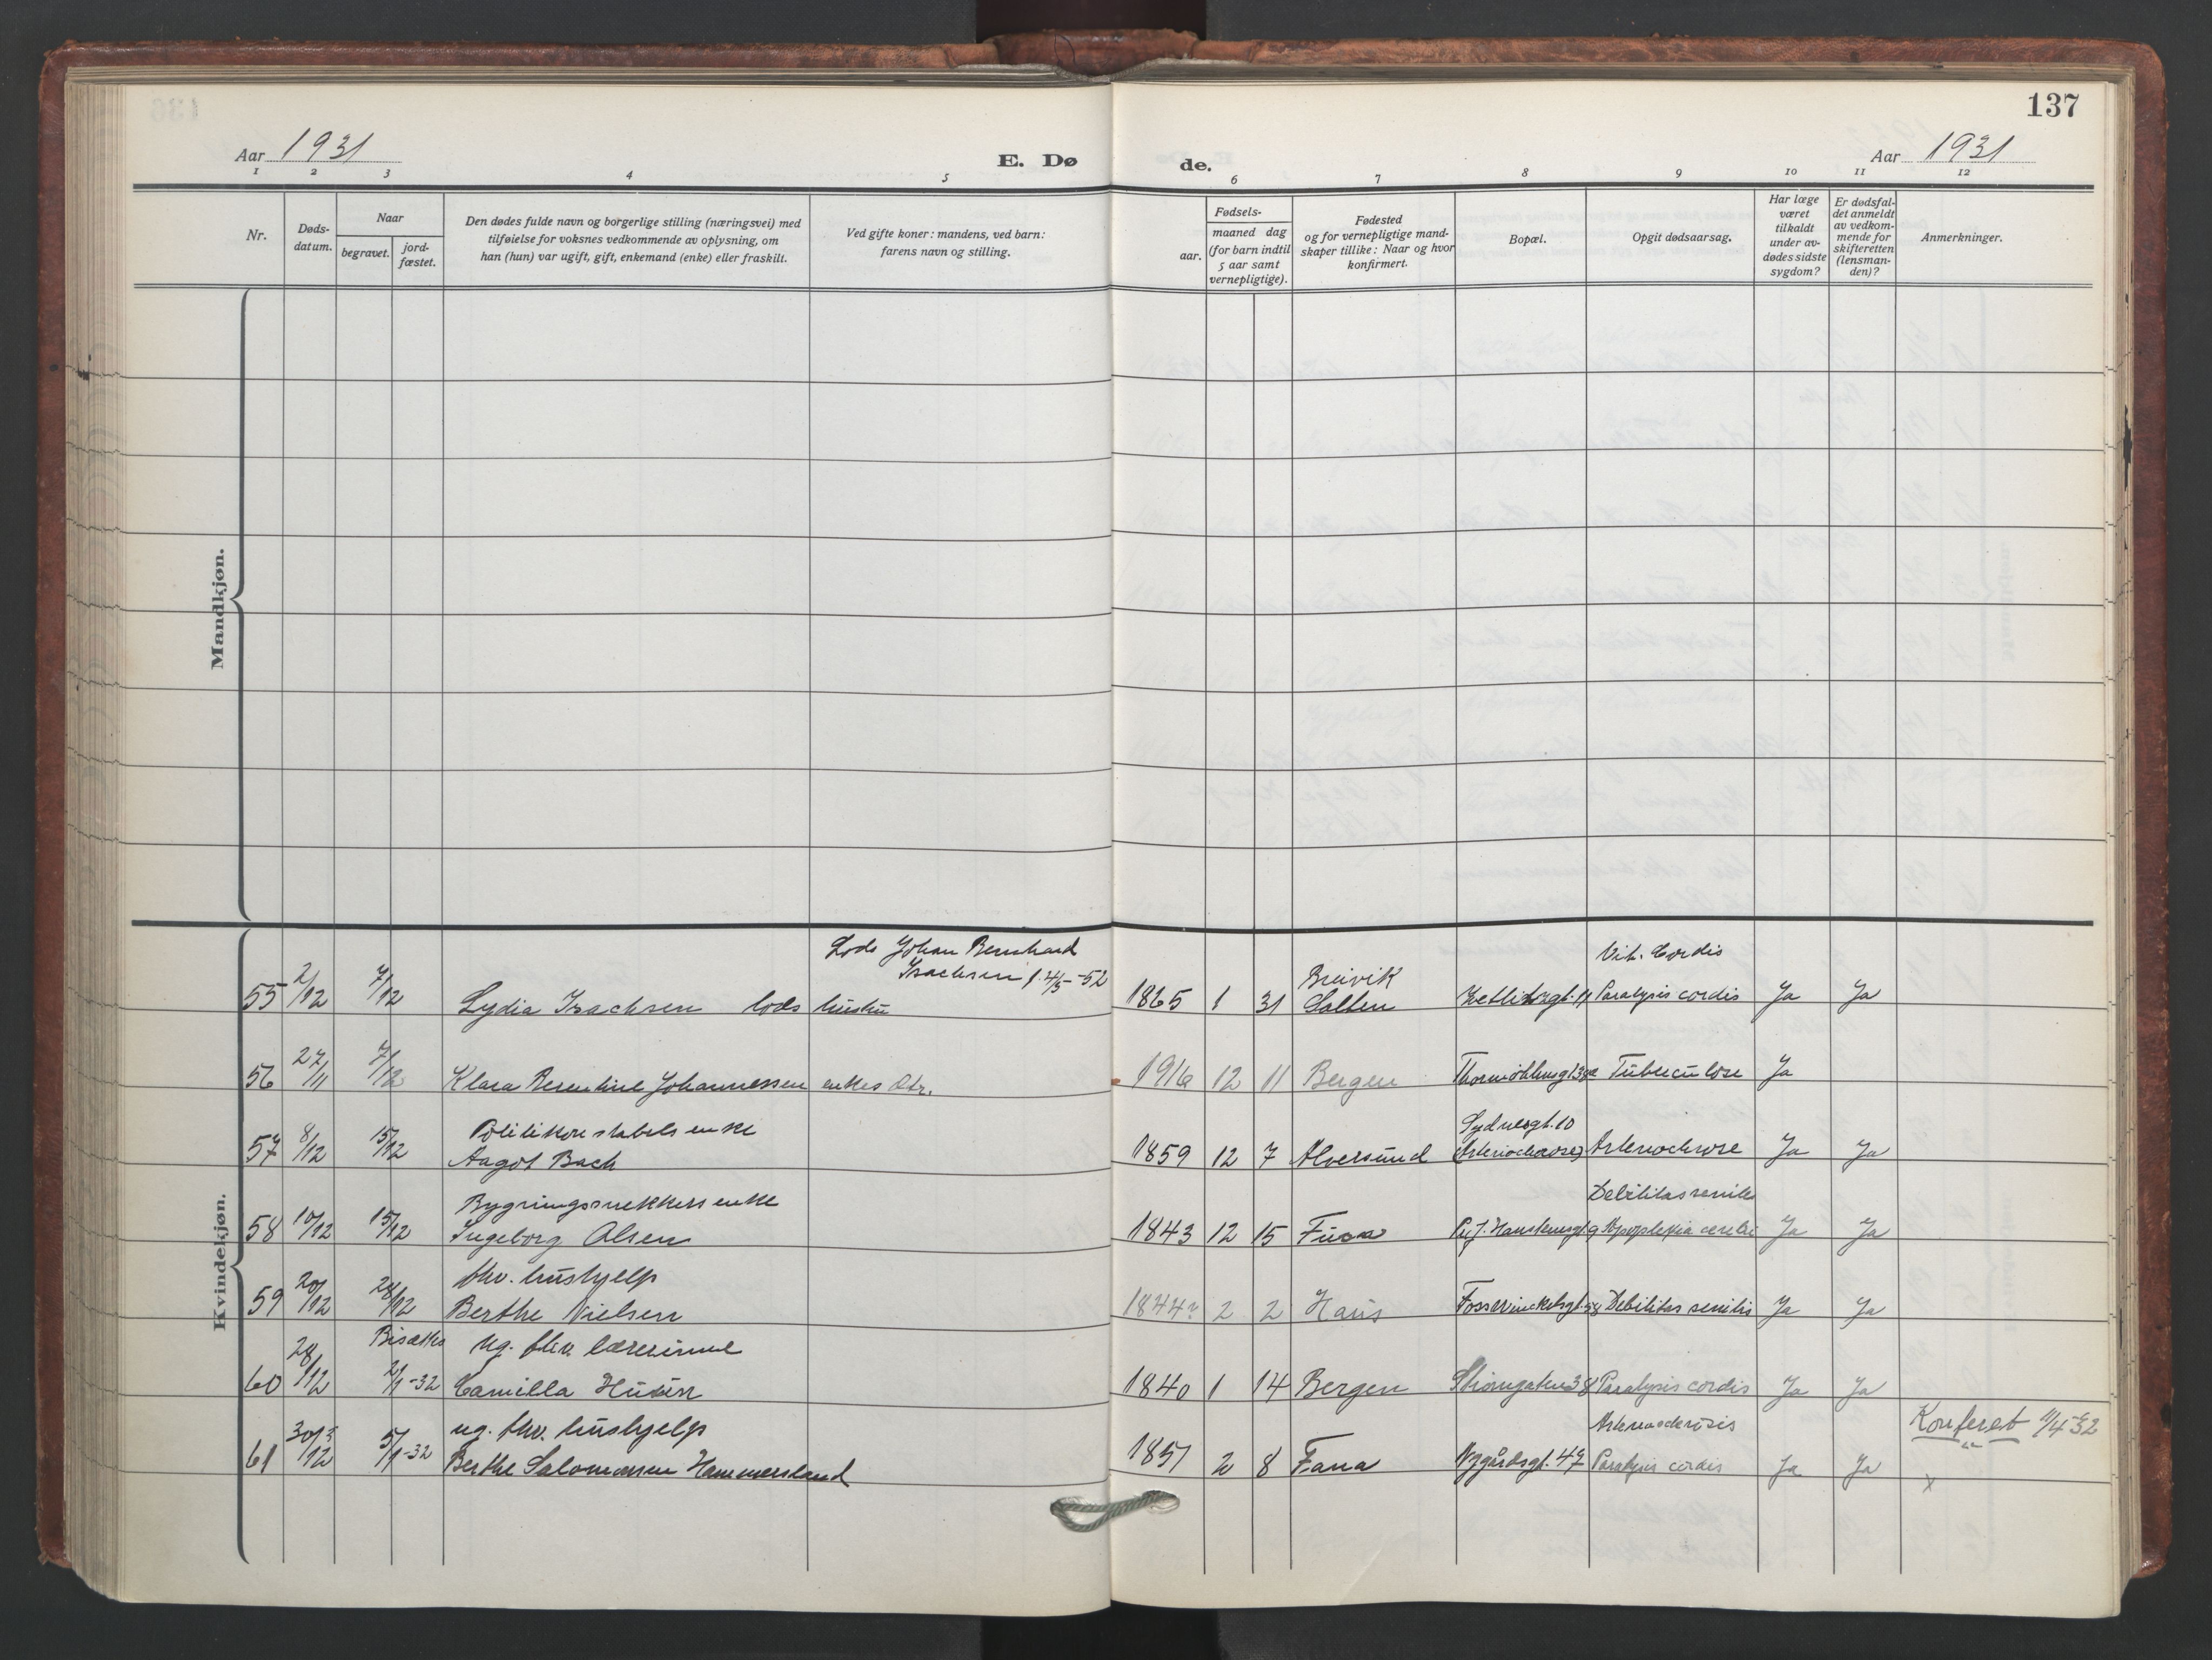 137
Aar 1931
E. Dø
de.
Aar 1931
1 2 3 4 5 6 7 8 9 10 11 12
Nr.
Døds-
datum.
Naar
begravet.
jord-
fæstet.
Den dødes fulde navn og borgerlige stilling (næringsvei) med
tilføielse for voksnes vedkommende av oplysning, om
han (hun) var ugift, gift, enkemand (enke) eller fraskilt.
Ved gifte koner: mandens, ved barn:
farens navn og stilling.
Fødsels-
aar.
maaned dag
(for barn indtil
5 aar samt
vernepligtige).
Fødested
og for vernepligtige mand-
skaper tillike: Naar og hvor
konfirmert.
Bopæl.
Opgit dødsaarsag.
Har læge
været
tilkaldt
under av-
dødes sidste
sygdom?
Er dødsfal-
det anmeldt
av vedkom-
mende for
skifteretten
(lensman-
den)?
Anmerkninger.
Mandkjøn.
Kvindekjøn.
Lods Johan Bernhard
Isachsen f. 4/5-52
Vit. Cordis
Breivik
55 2/12 7/12 Lydia Isachsen lods hustru 1865 1 31 Salten Paralysis cordis Ja Ja
56 27/11 7/12 Klara Johannessen enkes dtr. 1916 12 11 Bergen Tuberculose Ja
Politikonstabels enke
Sydnesgt. 10
57 8/12 15/12 Aagot Bach 1859 12 7 Alversund Ja Ja
Bygningssnekkers enke
Debilitas senilis
58 10/12 15/12 Ingeborg Olsen 1843 12 15 Apoplexia cerebri Ja Ja
fhv. hushjelp
59 20/12 28/12 Berthe Nielsen 1844? 2 2 Haus Fosswinckelsgt. 58 Debilitas senilis Ja Ja
Bisættes ug. fhv. lærerinne
60 28/12 2/1-32 Camilla 1840 1 14 Bergen Paralysis cordis Ja Ja
ug. fhv. hushjelp
Konferet 11/4 32
61 30/12 5/1-32 Berthe Salomonsen Hammersland 1851 2 8 Fana Nygårdsgt. 47 Paralysis cordis Ja Ja x